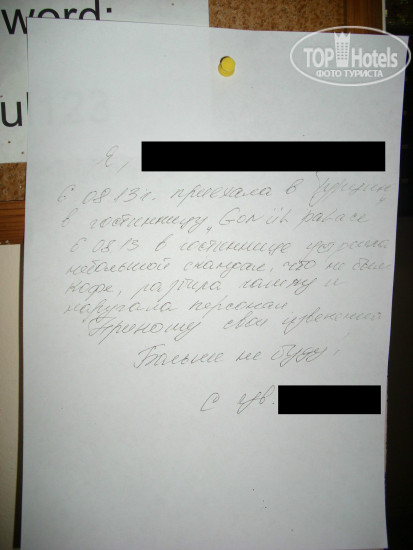 word:
TOP Hotels
ФОТО ТУРИСТА
Я,
6 08 13г. приехала в
в гостинницу „Gonül palace"
6 08 13 в гостиннице устроила
небольшой скандал, что не было
кофе, разбила и
наругала персонал
Приношу свои извенения
Больше не буду!
С ув.